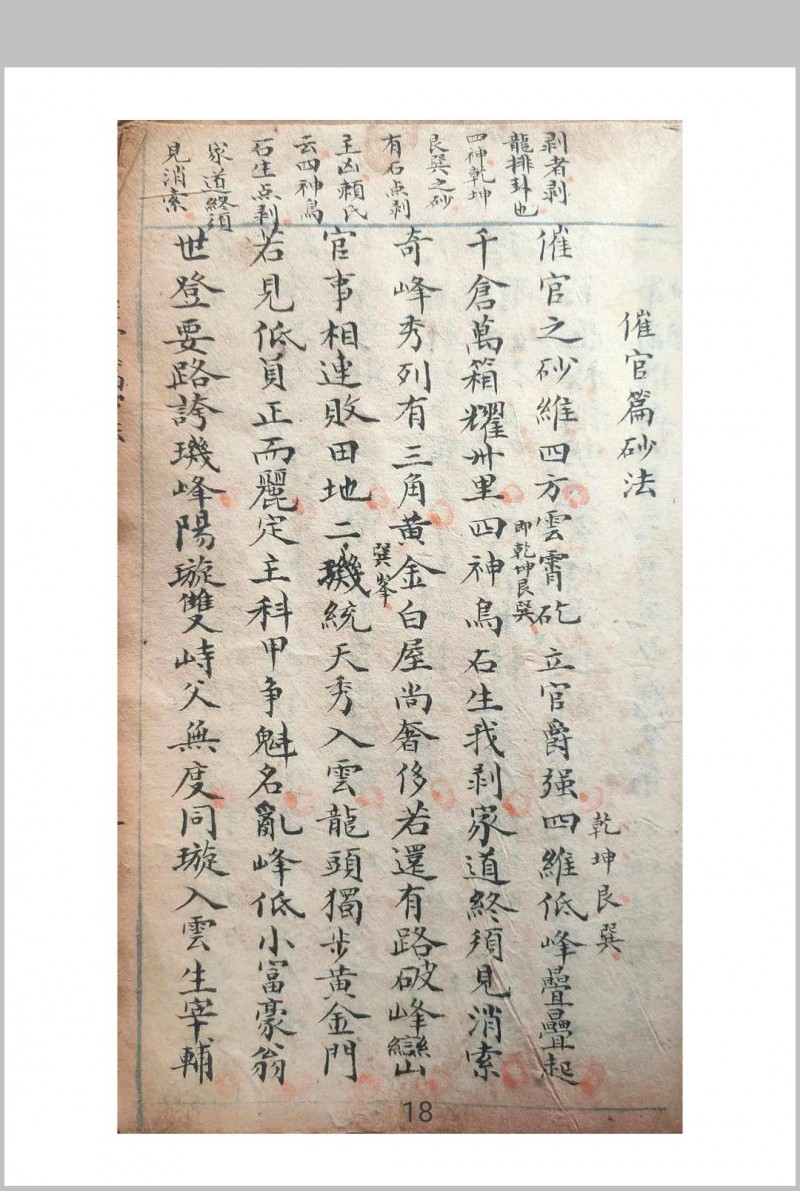 催官篇砂法
剥者剥
龍排卦也
四神乾坤
艮巽之砂
有石点剥
主凶賴氏
云四神烏
石生点剥
家道終須
見消索
催官之砂維四方雲霄矻立官爵强四維低峰疊疊起
乾坤艮巽
千倉萬箱耀州里四神烏石生我剥家道終須見消索
即乾坤艮巽
奇峰秀列有三角黄金白屋尚奢侈若還有路破峰巒
巽峯
官事相連敗田地二璣統天秀入雲龍頭獨步黄金門
若見低員正而麗定主科甲争魁名亂峰低小富豪翁
世登要路誇璣峰陽璇雙峙父無度同璇入雲生宰輔
18